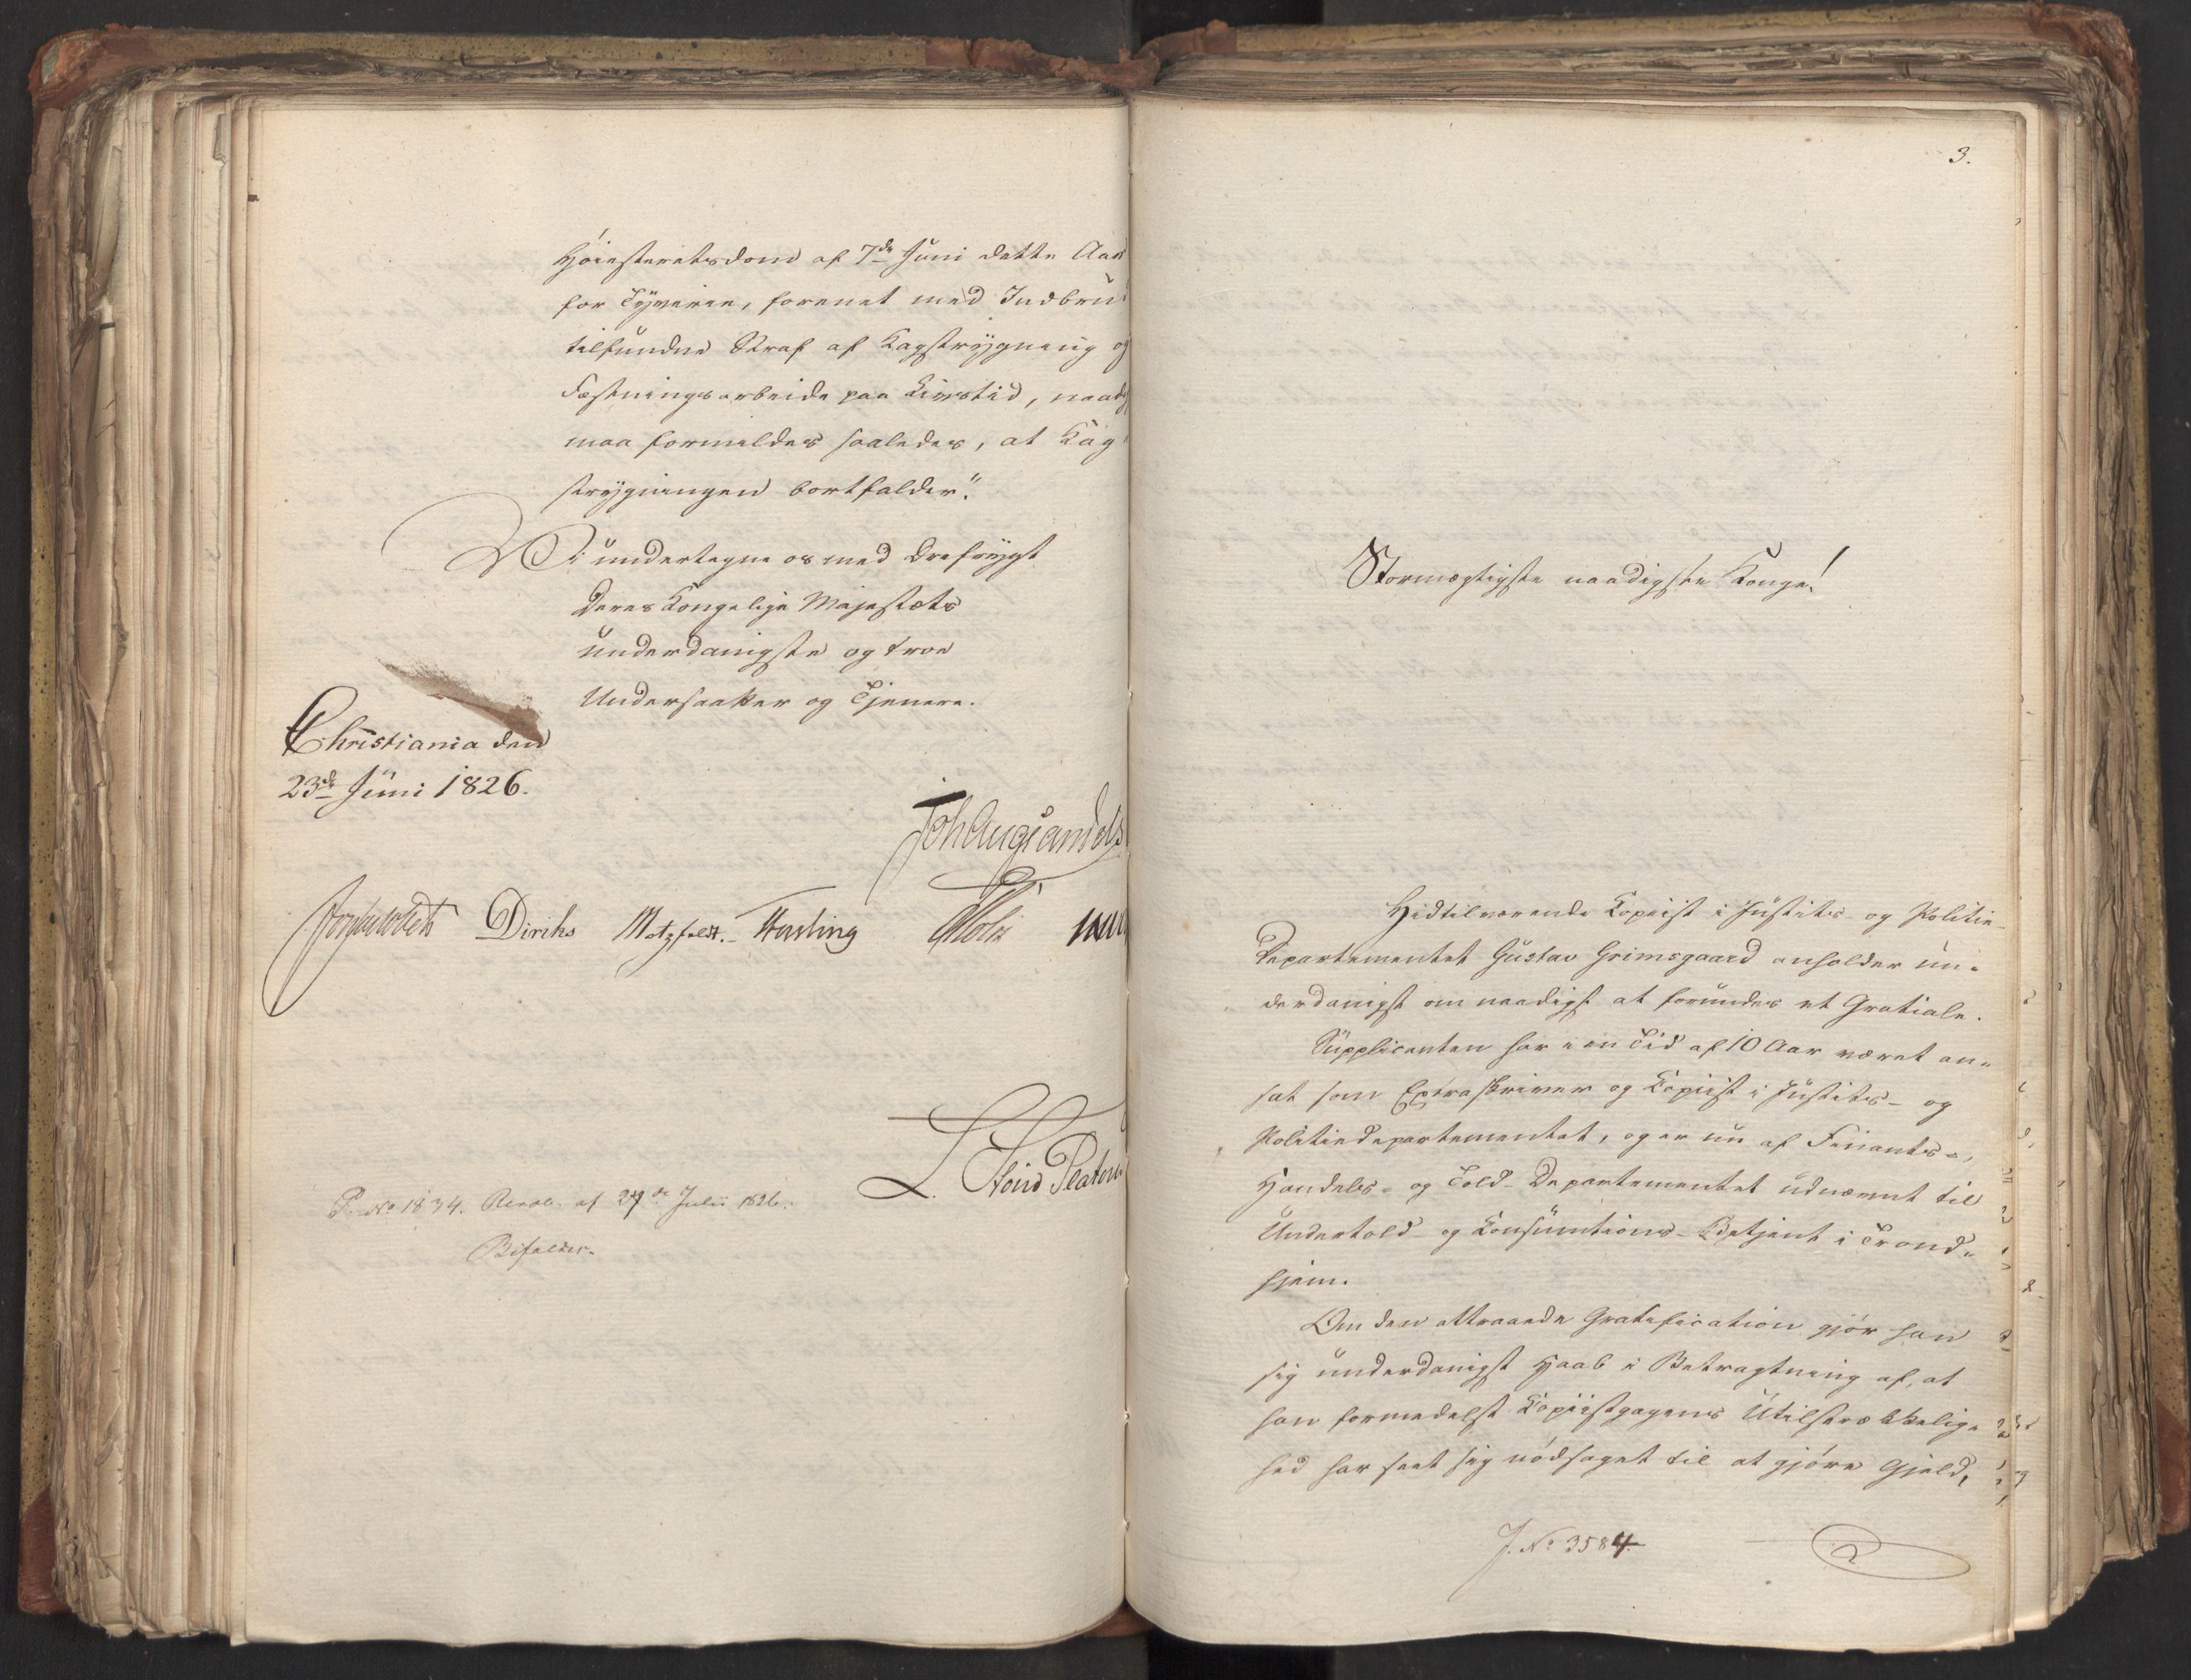 Høiesteretsdom af 7de Juni dette Aar
for Tyverie, forenet med Indbru
tilfundne Straf af Kagstrygning og
Fæstningsarbeide paa Livstid, naad
maa formildes saaledes, at Kag
strygningen bortfalder".
Vi undertegne os med Ærefrygt
Deres Kongelige Majestæts
underdanigste og troe
Undersaatter og Tjenere.
Christiania den
23de Juni 1826.
Joh Aug Sandels
Diriks Motzfeldt. Fasting Holst
L. Stoud Platou
P. No 1834. Resol. af 27de Julii 1826.
Bifaldes.
3.
Stormægtigste naadigste Konge!
Hidtilværende Copiist i Justits- og Politie-
Departementet Gustav Grimsgaard anholder un-
derdanigst om naadigst at forundes et Gratiale.
Supplicanten har i en Tid af 10 Aar været an-
sat som Extraskriver og Copiist i Justits- og
Politiedepartementet, og er nu af Finants-,
Handels- og Told-Departementet udnævnt til
Undertold- og Consumtions-Betjent i Trond-
hjem.
Om den attraaede Gratification gjør han
sig underdanigst Haab i Betragtning af, at
han formedelst Copiistgagens Utilstrækkelig-
hed har seet sig nødsaget til at gjøre Gjeld,
J. No 3584.